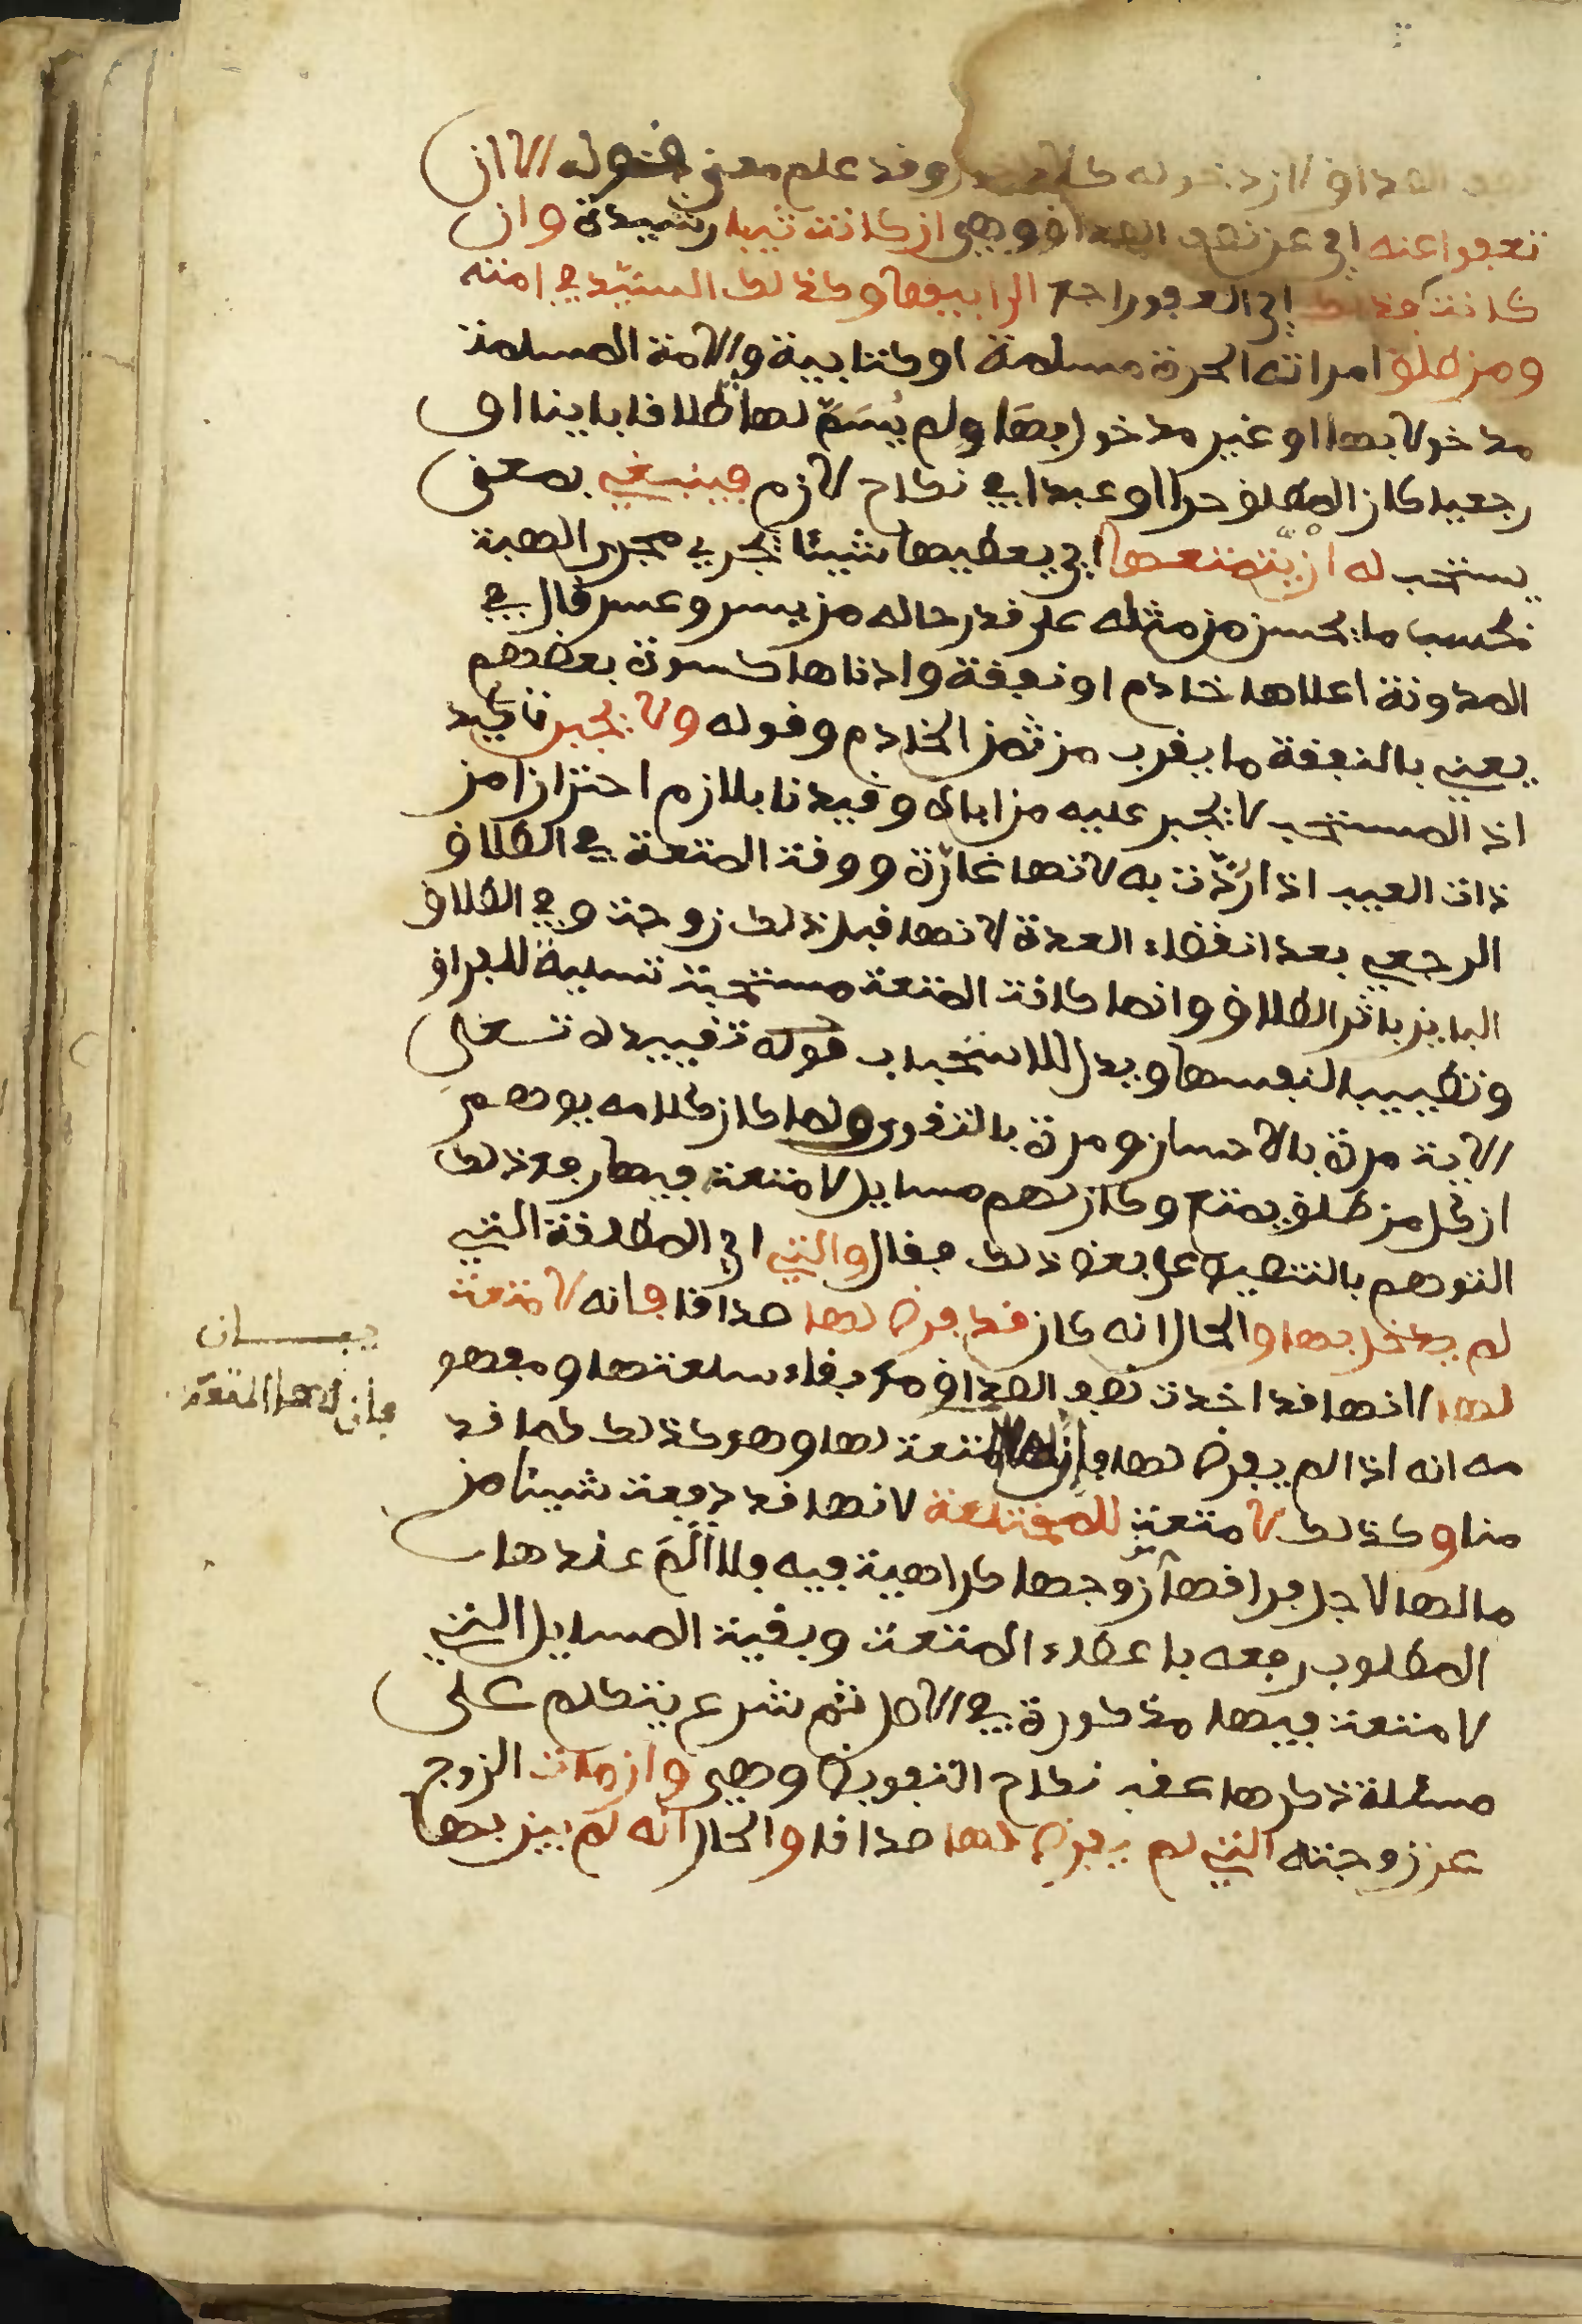 نصف الصداق لان دخوله كلا دخول وقد علم معنى قوله الا ان
تعفوا عنه اي عن نصف الصداق وهي ان كانت ثيبا رشيدة وان
كانت اي العفو راجع الى ابيها وكذلك السيد في امته
ومن طلق امراته الحرة مسلمة او كتابية والامة المسلمة
مدخولا بها او غير مدخول بها ولم يُسَمَّ لها طلاقا باينا او
رجعيا كان المطلق حرا او عبدا في نكاح لازم فينبغي بمعنى
يستحب له ان يمتعها اي يعطيها شيئا يجري مجرى الهبة
بحسب ما يحسن من مثله على قدر حاله من يسر وعسر قال في
المدونة اعلاها خادم او نفقة وادناها كسوة بعضهم
يعني بالنفقة ما يقرب من ثمن الخادم وقوله ولا يجبر تاكيد
اذ المستحب لا يجبر عليه من اباه وقيدنا بلازم احترازا من
ذات العيب اذا رُدّت به لانها غارّة ووقت المتعة في الطلاق
الرجعي بعد انقضاء العدة لانها قبل ذلك زوجة وفي الطلاق
الباين باثر الطلاق وانما كانت المتعة مستحبة تسلية للفراق
وتطييبا لنفسها ويدل للاستحباب قوله تقييده تعلى
الاية مرة بالاحسان ومرة بالتقوى ولما كان كلامه يوهم
ان كل من طلق يمتع وكان لهم مسايل لا متعة فيها رفع ذلك
التوهم بالتنصيص على بعض ذلك فقال والتي اي المطلقة التي
لم يدخل بها والحال انه كان قد فرض لها صداقا فانه لا متعة
لها لانها قد اخذت نصف الصداق مع بقاء سلعتها ومفهو
مه انه اذا لم يفرض لها فان لها المتعة لها وهو كذلك كما قد
منا وكذلك لا متعة للمختلعة لانها قد دفعت شيئا من
مالها لاجل فراقها زوجها كراهية فيه فلا اَلَمَ عندها
المطلوب رفعه باعطاء المتعة وبقية المسايل التي
لا متعة فيها مذكورة في الاصل ثم شرع يتكلم على
مسئلة ذكرها عقب نكاح التفويض وهي وان مات الزوج
عن زوجته التي لم يفرض لها صداقا والحال انه لم يبن بها
بيان
فان لها المتعة